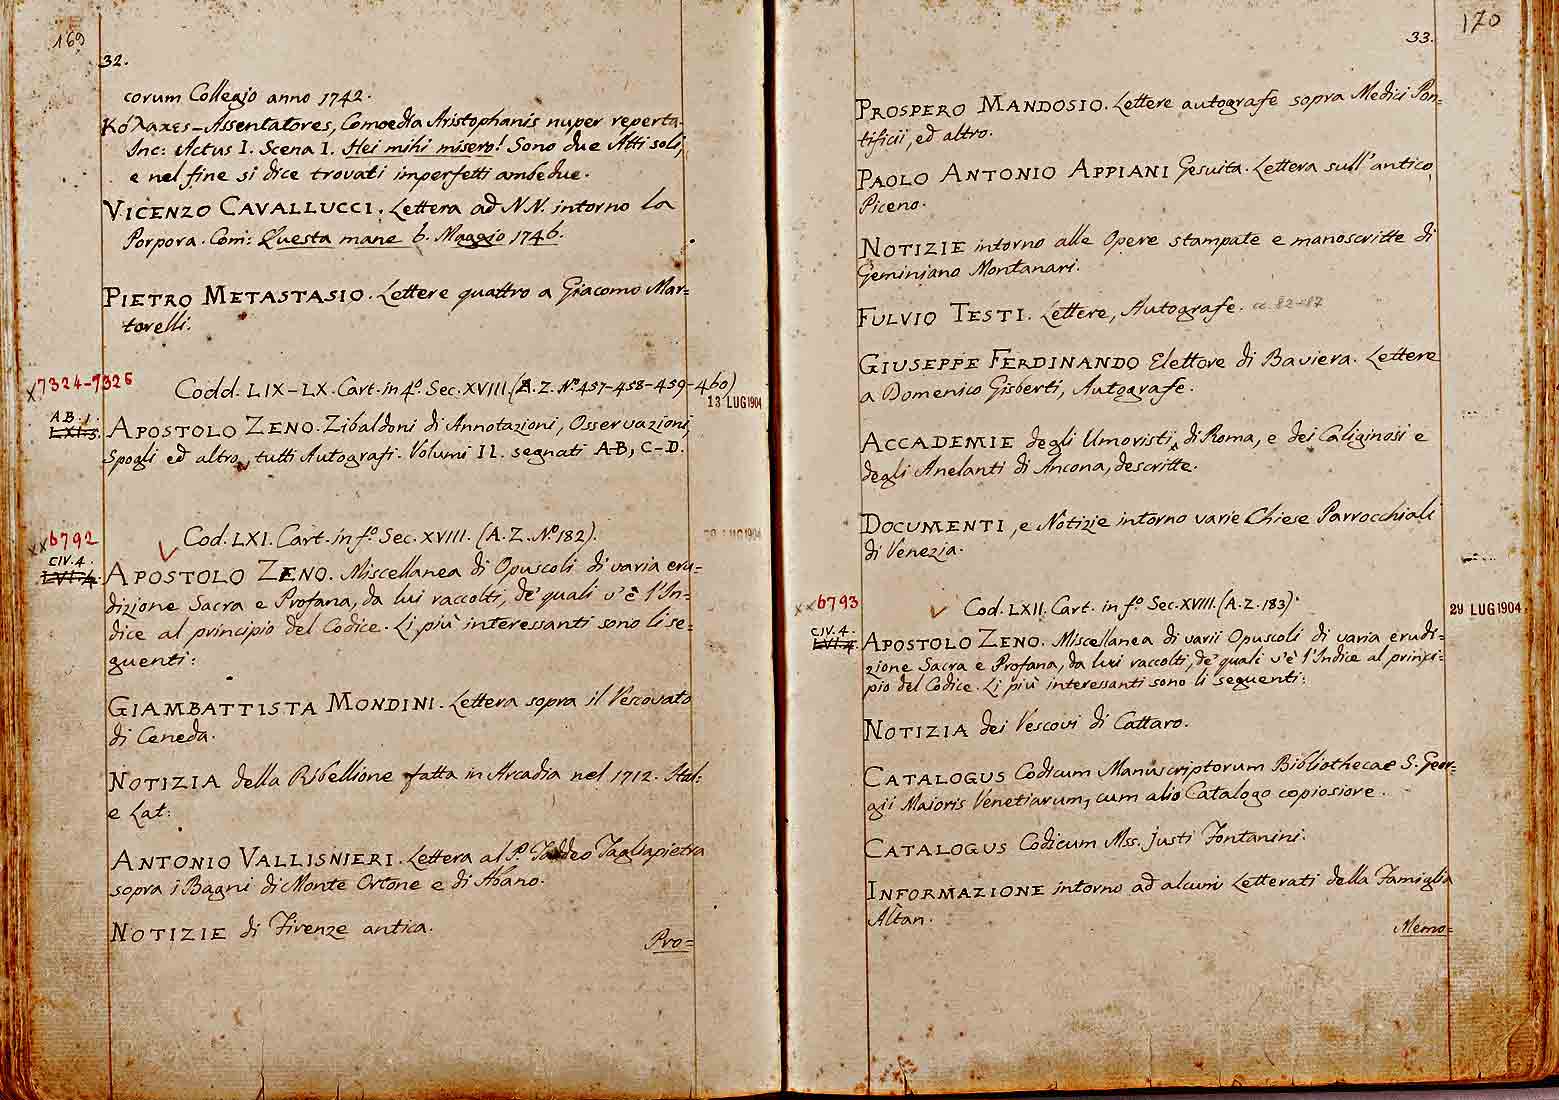 169
32.
corum Collegio anno 1742.
Κόλακες - Assentatores, Comoedia Aristophanis nuper reperta.
Inc: Actus I. Scena I. Hei mihi misero! Sono due Atti soli,
e nel fine si dice trovati imperfetti ambedue.
VICENZO CAVALLUCCI. Lettera ad N.N. intorno la
Porpora. Com: Questa mane 6. Maggio 1746.
PIETRO METASTASIO. Lettere quattro a Giacomo Mar=
torelli.
x7324-7325
Codd. LIX-LX. Cart. in 4º. Sec. XVIII. (A.Z. Nº 457-458-459-460)
13 LUG 1904
A.B.1.
LXI.3.
APOSTOLO ZENO. Zibaldoni di Annotazioni, Osservazioni,
Spogli ed altro, tutti Autografi. Volumi II. segnati A-B, C-D.
xx6792
Cod. LXI. Cart. in fº. Sec. XVIII. (A.Z. Nº 182).
29 LUG 1904
CIV.4.
LVI.4.
APOSTOLO ZENO. Miscellanea di Opuscoli di varia eru=
dizione Sacra e Profana, da lui raccolti, de' quali v'è l'In=
dice al principio del Codice. Li più interessanti sono li se=
guenti:
GIAMBATTISTA MONDINI. Lettera sopra il Vescovato
di Ceneda.
NOTIZIA della Ribellione fatta in Arcadia nel 1712. Ital:
e Lat:
ANTONIO VALLISNIERI. Lettera al P. Taddeo Tagliapietra
sopra i Bagni di Monte Ortone e di Abano.
NOTIZIE di Firenze antica.
Pro=
170
33.
PROSPERO MANDOSIO. Lettere autografe sopra Medici Pon=
tificii, ed altro.
PAOLO ANTONIO APPIANI Gesuita. Lettera sull'antico
Piceno.
NOTIZIE intorno alle Opere stampate e manoscritte di
Geminiano Montanari.
FULVIO TESTI. Lettere, Autografe. cc. 82-87
GIUSEPPE FERDINANDO Elettore di Baviera. Lettere
a Domenico Gisberti, Autografe.
ACCADEMIE degli Umoristi, di Roma, e dei Caliginosi e
degli Anelanti di Ancona, descritte.
DOCUMENTI, e Notizie intorno varie Chiese Parrocchiali
di Venezia.
xx6793
Cod. LXII. Cart. in fº. Sec. XVIII. (A.Z. 183).
29 LUG 1904
CIV.4.
LVI.4.
APOSTOLO ZENO. Miscellanea di varii Opuscoli di varia erudi=
zione Sacra e Profana, da lui raccolti, de' quali v'è l'Indice al princi=
pio del Codice. Li più interessanti sono li seguenti:
NOTIZIA dei Vescovi di Cattaro.
CATALOGUS Codicum Manuscriptorum Bibliothecae S. Geor=
gii Maioris Venetiarum, cum alio Catalogo copiosiore.
CATALOGUS Codicum Mss. Justi Fontanini.
INFORMAZIONE intorno ad alcuni Letterati della Famiglia
Altan.
Memo=